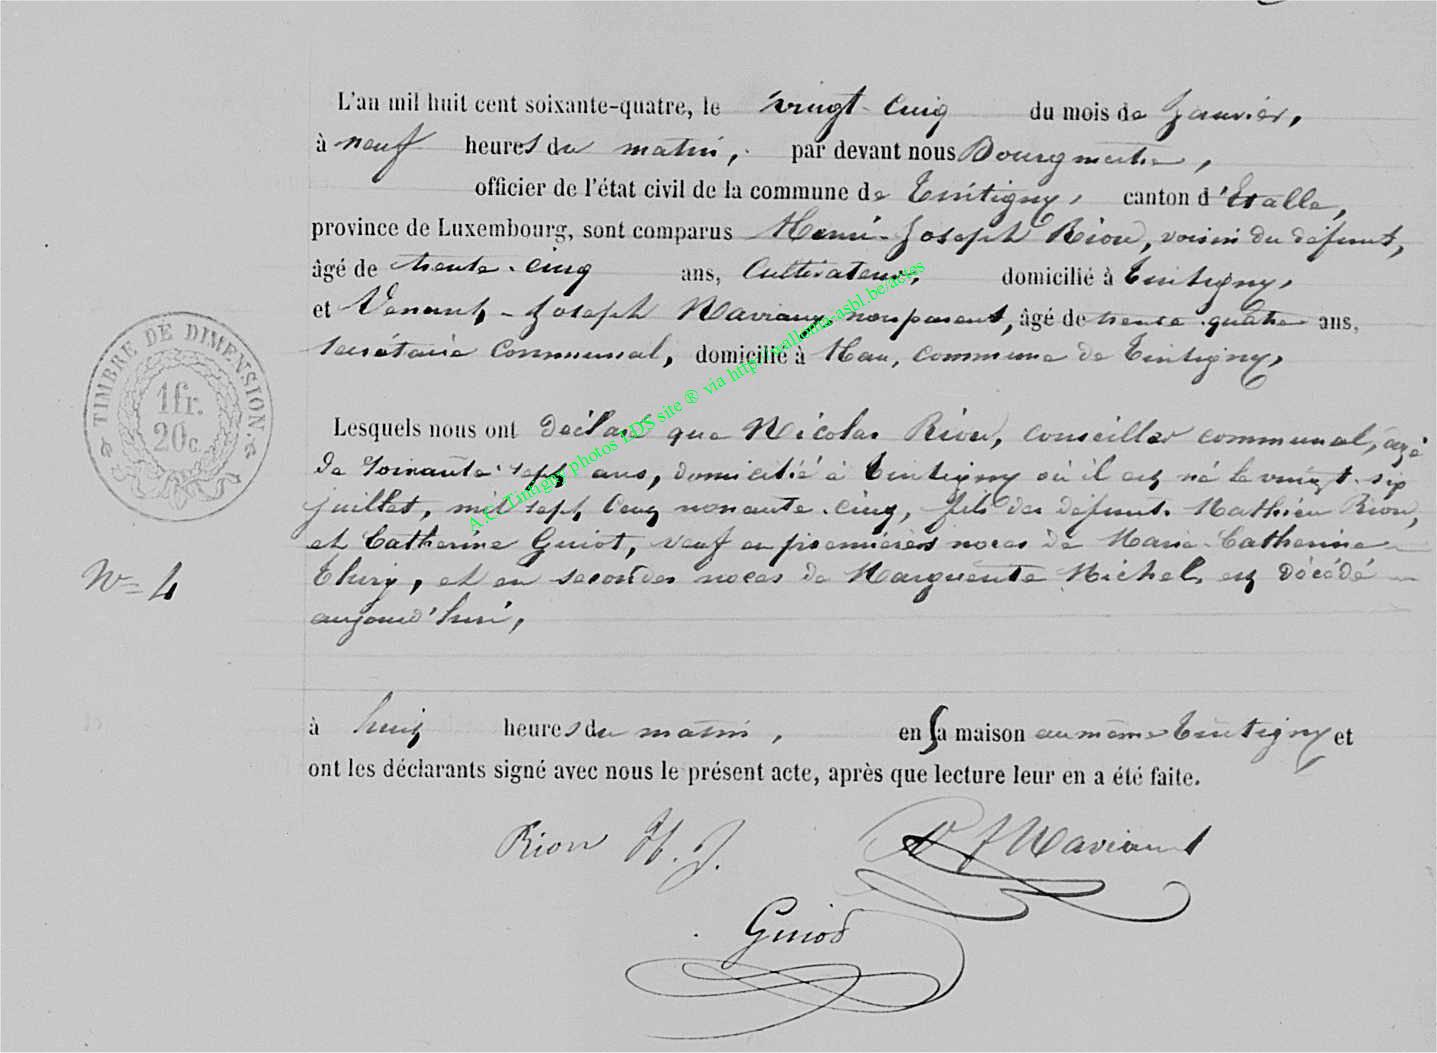 L'an mil huit cent soixante-quatre, le vingt-cinq du mois de Janvier,
à neuf heures du matin, par devant nous Bourgmestre,
officier de l'état civil de la commune de Tintigny, canton d'Etalle,
province de Luxembourg, sont comparus Henri-Joseph Rion, voisin du défunt,
âgé de trente-cinq ans, Cultivateur, domicilié à Tintigny,
et Venant-Joseph Maviaux non parent, âgé de trente-quatre ans,
secrétaire Communal, domicilié à Han, commune de Tintigny,
TIMBRE DE DIMENSION.
1fr.
20c.
Lesquels nous ont déclaré que Nicolas Rion, conseiller communal, âgé
de soixante-sept ans, domicilié à Tintigny où il est né le vingt-six
juillet, mil sept cent nonante-cinq, fils des défunts Mathieu Rion,
et Catherine Guiot, veuf en premières noces de Marie-Catherine
N° 4
et en secondes noces de Marguerite Michel, est décédé
aujourd'hui,
à huit heures du matin, en sa maison au même Tintigny et
ont les déclarants signé avec nous le présent acte, après que lecture leur en a été faite.
Rion H. J.
V J Maviaux
Guiot
A.C. Tintigny photos LDS site ® via http://wallonia-asbl.be/actes